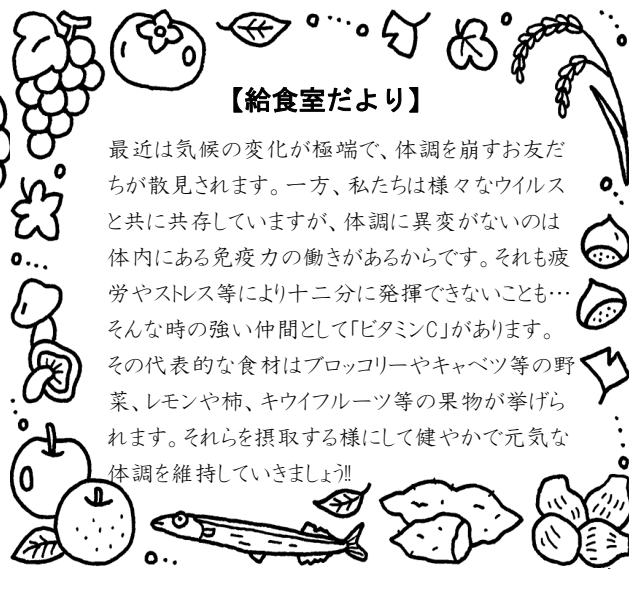 【給食室だより】
最近は気候の変化が極端で、体調を崩すお友だ
ちが散見されます。一方、私たちは様々なウイルス
と共に共存していますが、体調に異変がないのは
体内にある免疫力の働きがあるからです。それも疲
労やストレス等により十二分に発揮できないことも…
そんな時の強い仲間として｢ビタミンC｣があります。
その代表的な食材はブロッコリーやキャベツ等の野
菜、レモンや柿、キウイフルーツ等の果物が挙げら
れます。それらを摂取する様にして健やかで元気な
体調を維持していきましょう!!